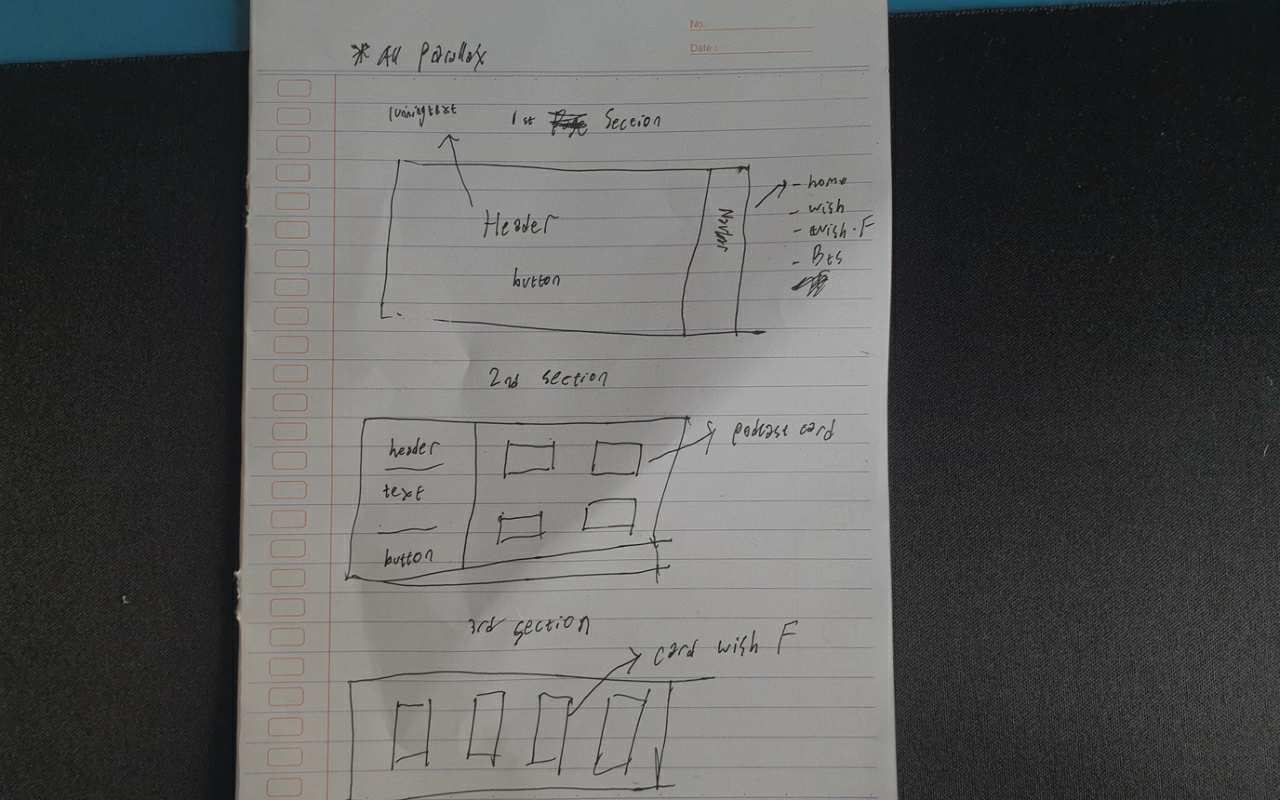 No.
Date :
* All Parallax
runningtext
1st Section
Header
button
Navbar
- home
- wish
- wish . F
- Bts
2nd section
header
text
button
podcast card
3rd section
card wish F